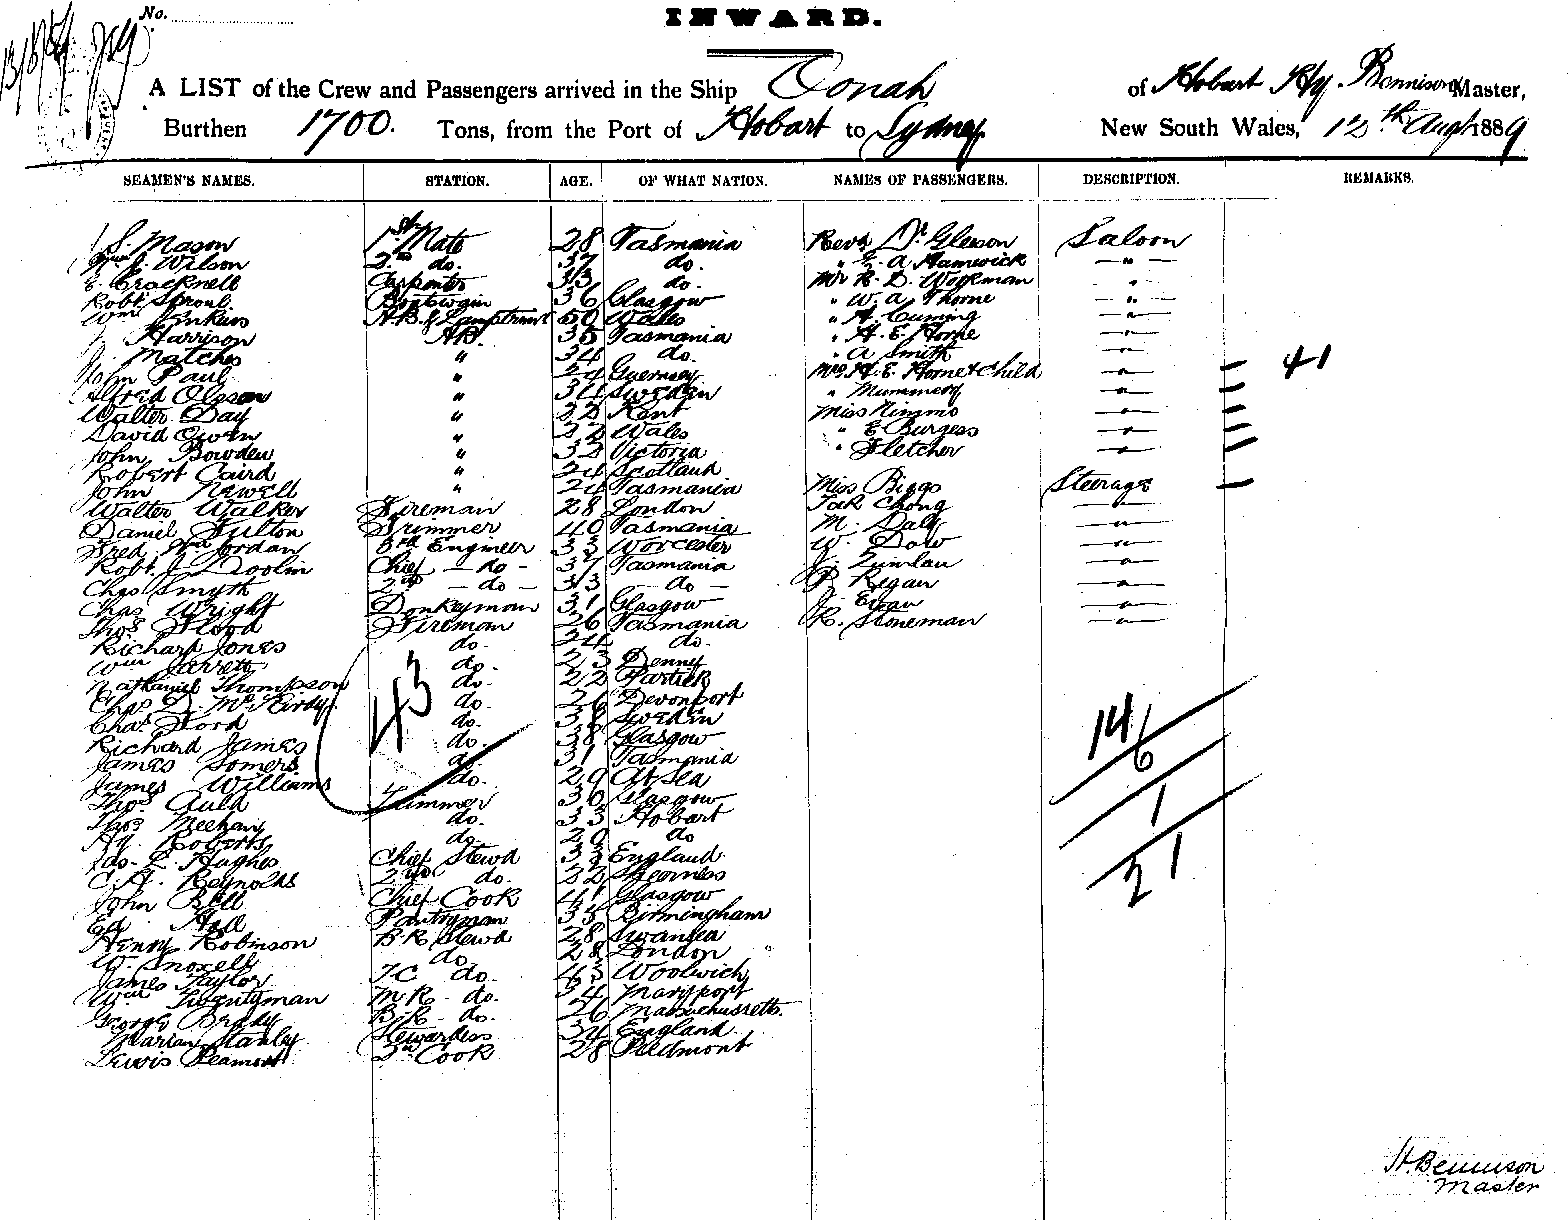 No.
INWARD.
A LIST of the Crew and Passengers arrived in the Ship Oonah of Hobart Hy. Bennison Master,
Burthen 1700. Tons, from the Port of Hobart to Sydney New South Wales, 12th Augt 1889
SEAMEN'S NAMES. STATION. AGE. OF WHAT NATION. NAMES OF PASSENGERS. DESCRIPTION. REMARKS.
S. Mason 1st Mate 28 Tasmania Revd Dr Gleeson Saloon
Wilson 2nd do. 37 do. " E. A. Hamerick "
E. Cracknell Carpenter 33 do. Mr R. D. Workman "
Robt Sproul Boatswain 36 Glasgow " W. A. Thorne "
Wm Jenkins A.B. & Lamptrimr 50 Wales " A. Cuming "
Harrison A.B. 35 Tasmania " H. E. Horne "
Matches " 34 do. " A Smith "
John Paul " 24 Guernsey Mrs H. E. Horne & Child " 41
Alfred Olsson " 34 Sweden " Mummery "
Walter Day " 22 Kent Miss Nimmo "
David Owen " 22 Wales " E Burgess "
John Bowden " 32 Victoria " Fletcher "
Robert Caird " 24 Scotland
John Newell " 24 Tasmania Miss Biggs Steerage
Walter Walker Fireman 28 London Tak Chong "
Daniel Fulton Trimmer 40 Tasmania M. Daly "
Fred Wm Jordan 3rd Engineer 33 Worcester W. Dow "
Robt J Doolin Chief - do - 37 Tasmania J. Quinlan "
Chas Smyth 2nd - do - 33 - do - P. Regan "
Chas Wright Donkeyman 31 Glasgow J. Evan "
Thos Flood Fireman 26 Tasmania R. Stoneman "
Richard Jones do. 24 do.
Wm Jarrett do. 23 Denny
Nathaniel Thompson do. 22 Partick
Chas D. McKirdy do. 26 Devonport
Chas Ford do. 38 Sweden
Richard James do. 38 Glasgow
James Somers do. 31 Tasmania
James Williams do. 29 At Sea
Thos Auld Trimmer 36 Glasgow
Thos Meehan do. 33 Hobart
Hy. Roberts do. 29 do
Jas. E. Hughes Chief Stewd 33 England
C. H. Reynolds 2nd do. 22 Sheerness
John Bell Chief Cook 41 Glasgow
Ed Hill Pantryman 35 Birmingham
Henry Robinson B.R. Stewd 28 Swansea
W. Snoxell do 28 London
James Taylor F.C do. 43 Woolwich
Wm Twentyman M.R - do. 34 Maryport
George Brady B.R. - do. 26 Massachussetts.
Marian Stanley Stewardess 34 England
Lewis Peamont 2nd Cook 28 Piedmont
43
14
6
1
21
H. Bennison
Master